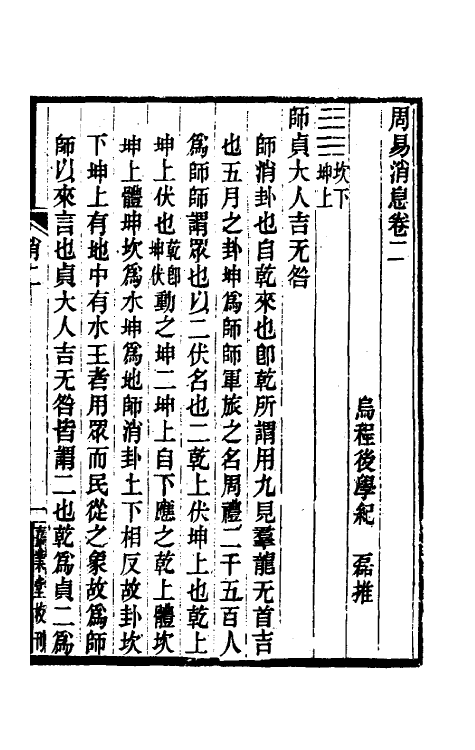 周易消息卷二
烏程後學紀　磊撰
坎下
坤上
師貞大人吉无咎
師消卦也自乾來也卽乾所謂用九見羣龍无首吉
也五月之卦坤爲師師軍旅之名周禮二千五百人
爲師師謂眾也以二伏名也二乾上伏坤上也乾上
坤上伏也乾卽坤伏動之坤二坤上自下應之乾上體坎
坤上體坤坎爲水坤爲地師消卦上下相反故卦坎
下坤上有地中有水王者用眾而民從之象故爲師
師以來言也貞大人吉无咎皆謂二也乾爲貞二爲
消二
一
業堂校刊